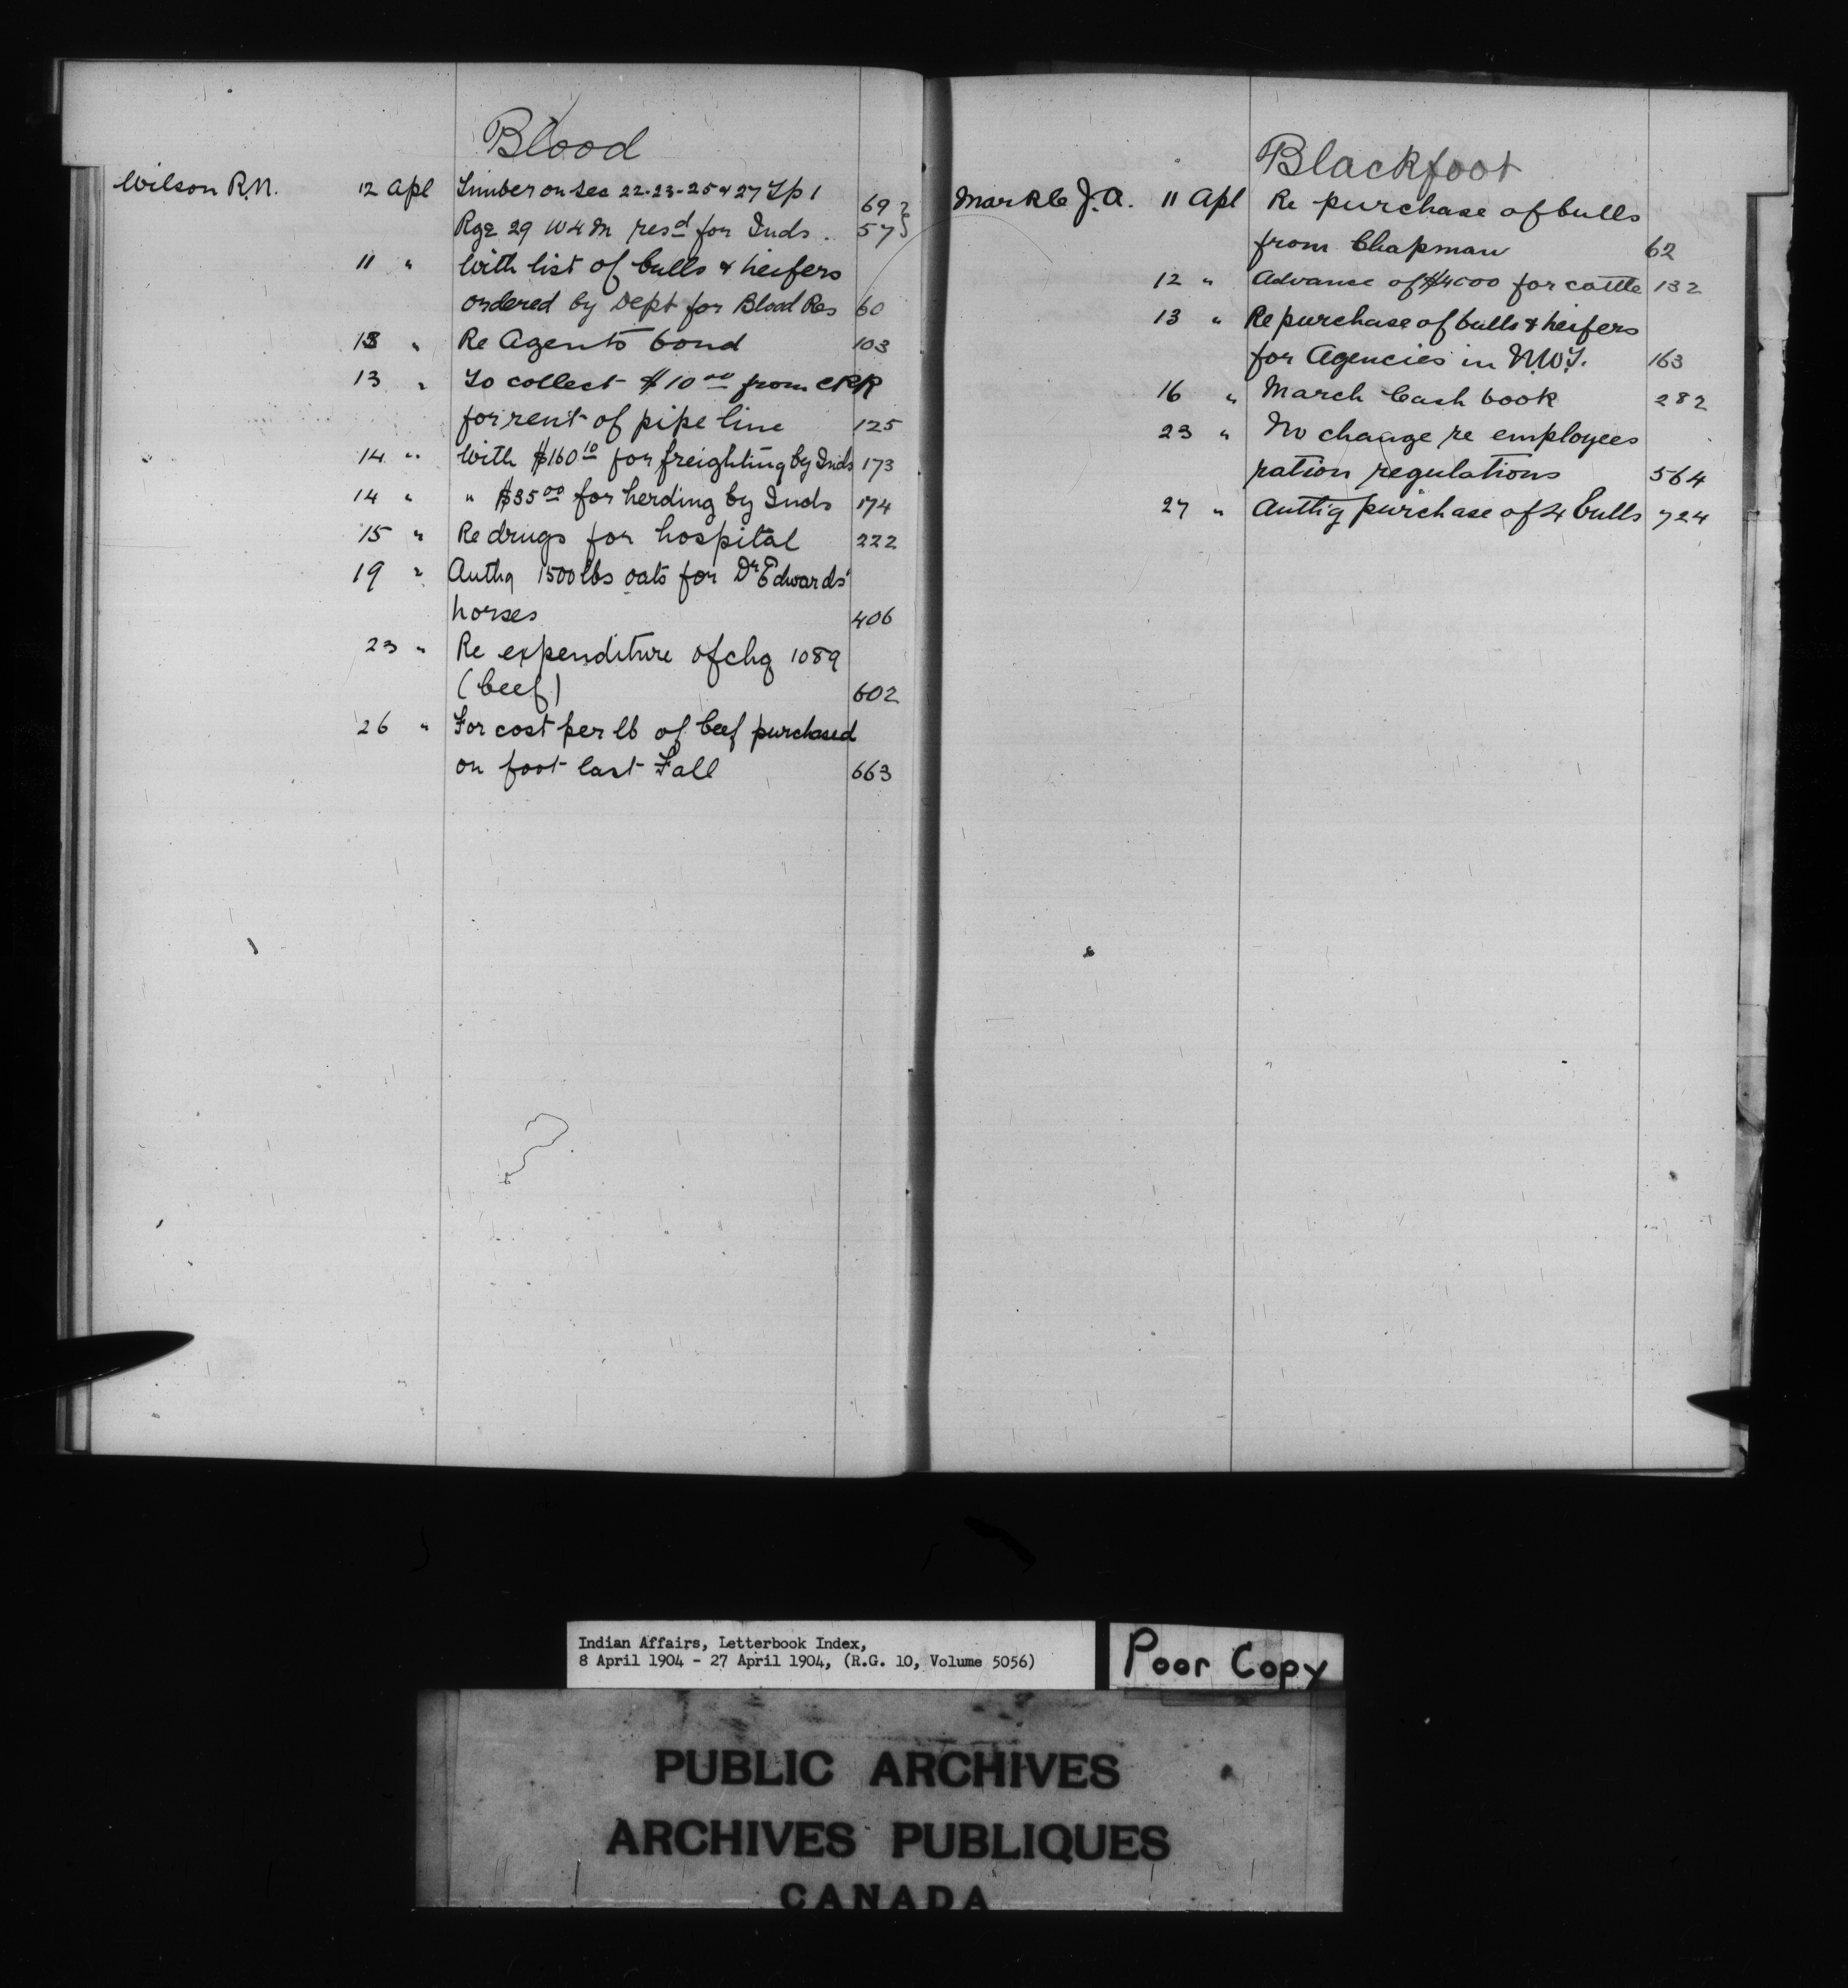 Blood
Wilson R.N. 12 Apl Timber on Sec 22-23-25 & 27 Tp 1 69 }
Rge 29 W4M resd for Inds. 57 }
11 " With list of bulls & heifers
ordered by Dept for Blood Res 60
13 " Re Agents bond 103
13 " To collect $10 00 from CPR
for rent of pipe line 125
14 " With $160 10 for freighting by Inds 173
14 " " $35 00 for herding by Inds 174
15 " Re drugs for hospital 222
19 " Authg 1500 lbs oats for Dr Edwards'
horses 406
23 " Re expenditure of chq 1089
(beef) 602
26 " For cost per lb of beef purchased
on foot last Fall 663
Blackfoot
Markle J.A. 11 Apl Re purchase of bulls
from Chapman 62
12 " Advance of $4000 for cattle 132
13 " Re purchase of bulls & heifers
for Agencies in N.W.T. 163
16 " March Cash book 282
23 " No change re employees
ration regulations 564
27 " Authg purchase of 4 bulls 724
Indian Affairs, Letterbook Index,
8 April 1904 - 27 April 1904, (R.G. 10, Volume 5056)
Poor Copy
PUBLIC ARCHIVES
ARCHIVES PUBLIQUES
CANADA